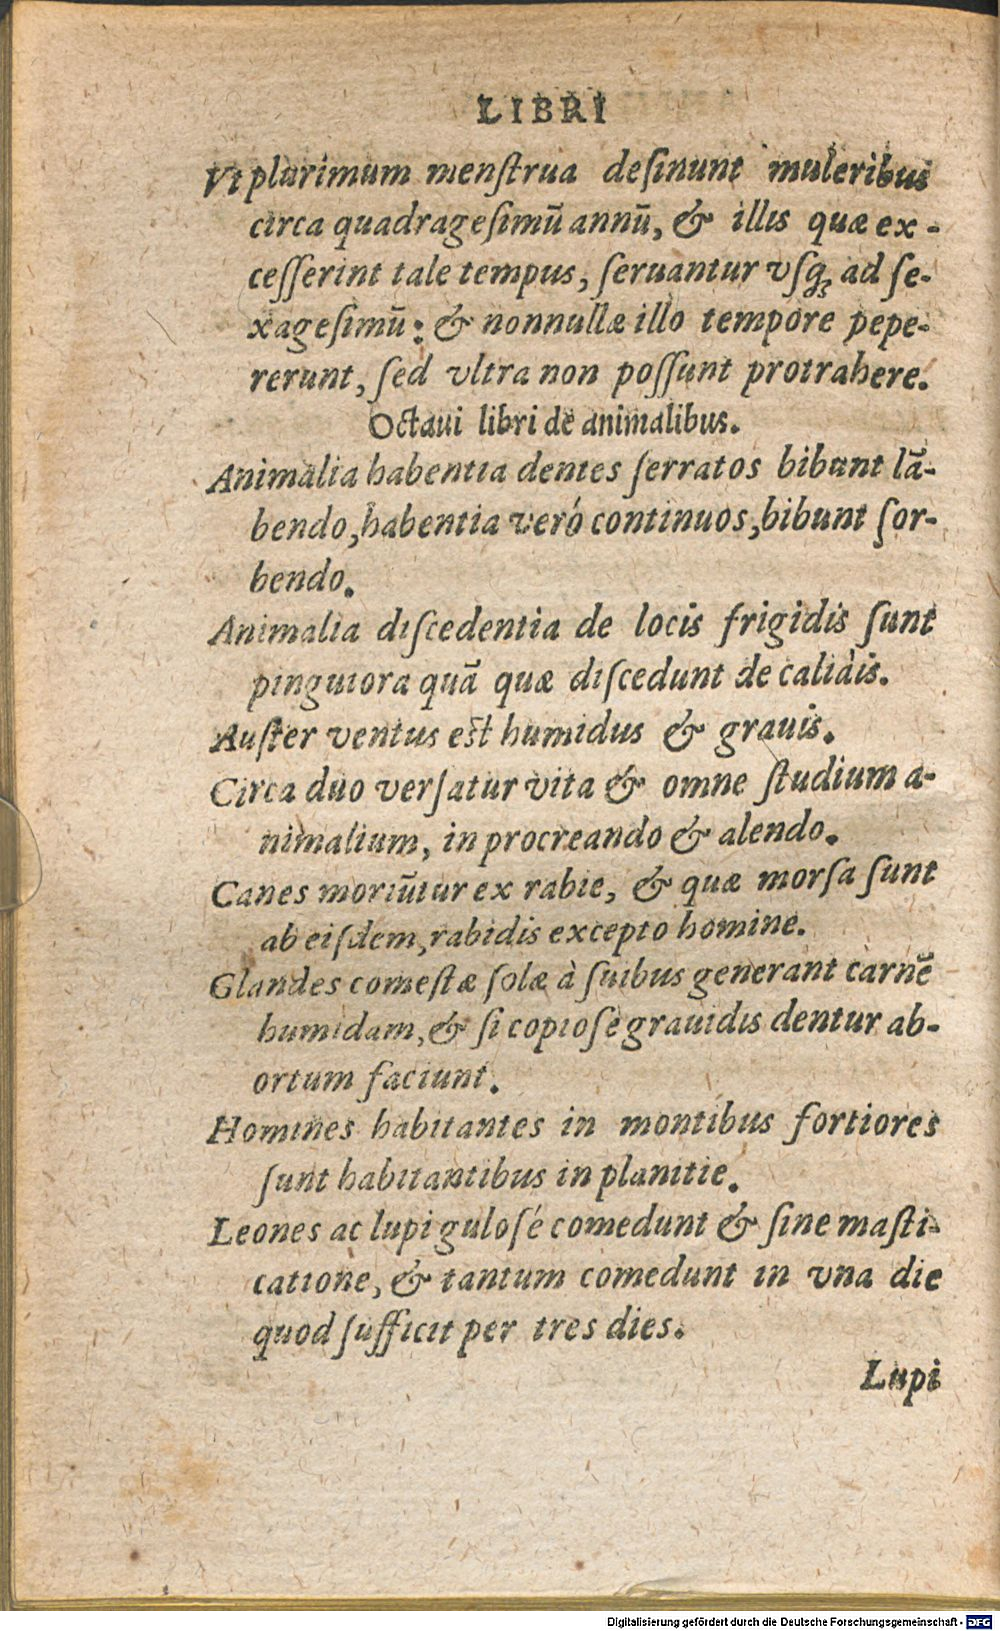 LIBRI
Vt plurimum menſtrua deſinunt muleribus
circa quadrageſimū annū, & illis quæ ex-
ceſſerint tale tempus, ſeruantur vſq; ad ſe-
xageſimū: & nonnullæ illo tempore pepe-
rerunt, ſed vltra non poſſunt protrahere.
Octaui libri de animalibus.
Animalia habentia dentes ſerratos bibunt lā-
bendo, habentia veró continuos, bibunt ſor-
bendo.
Animalia diſcedentia de locis frigidis ſunt
pinguiora quā quæ diſcedunt de calidis.
Auſter ventus est humidus & grauis.
Circa duo verſatur vita & omne ſtudium a-
nimalium, in procreando & alendo.
Canes moriūtur ex rabie, & quæ morſa ſunt
ab eiſdem, rabidis excepto homine.
Glandes comeſtæ ſolæ à ſuibus generant carnē
humidam, & ſi copioſe grauidis dentur ab-
ortum faciunt.
Homines habitantes in montibus fortiores
ſunt habitantibus in planitie.
Leones ac lupi guloſé comedunt & ſine maſti-
catione, & tantum comedunt in vna die
quod ſufficit per tres dies.
Lupi
Digitalisierung gefördert durch die Deutsche Forschungsgemeinschaft - DFG